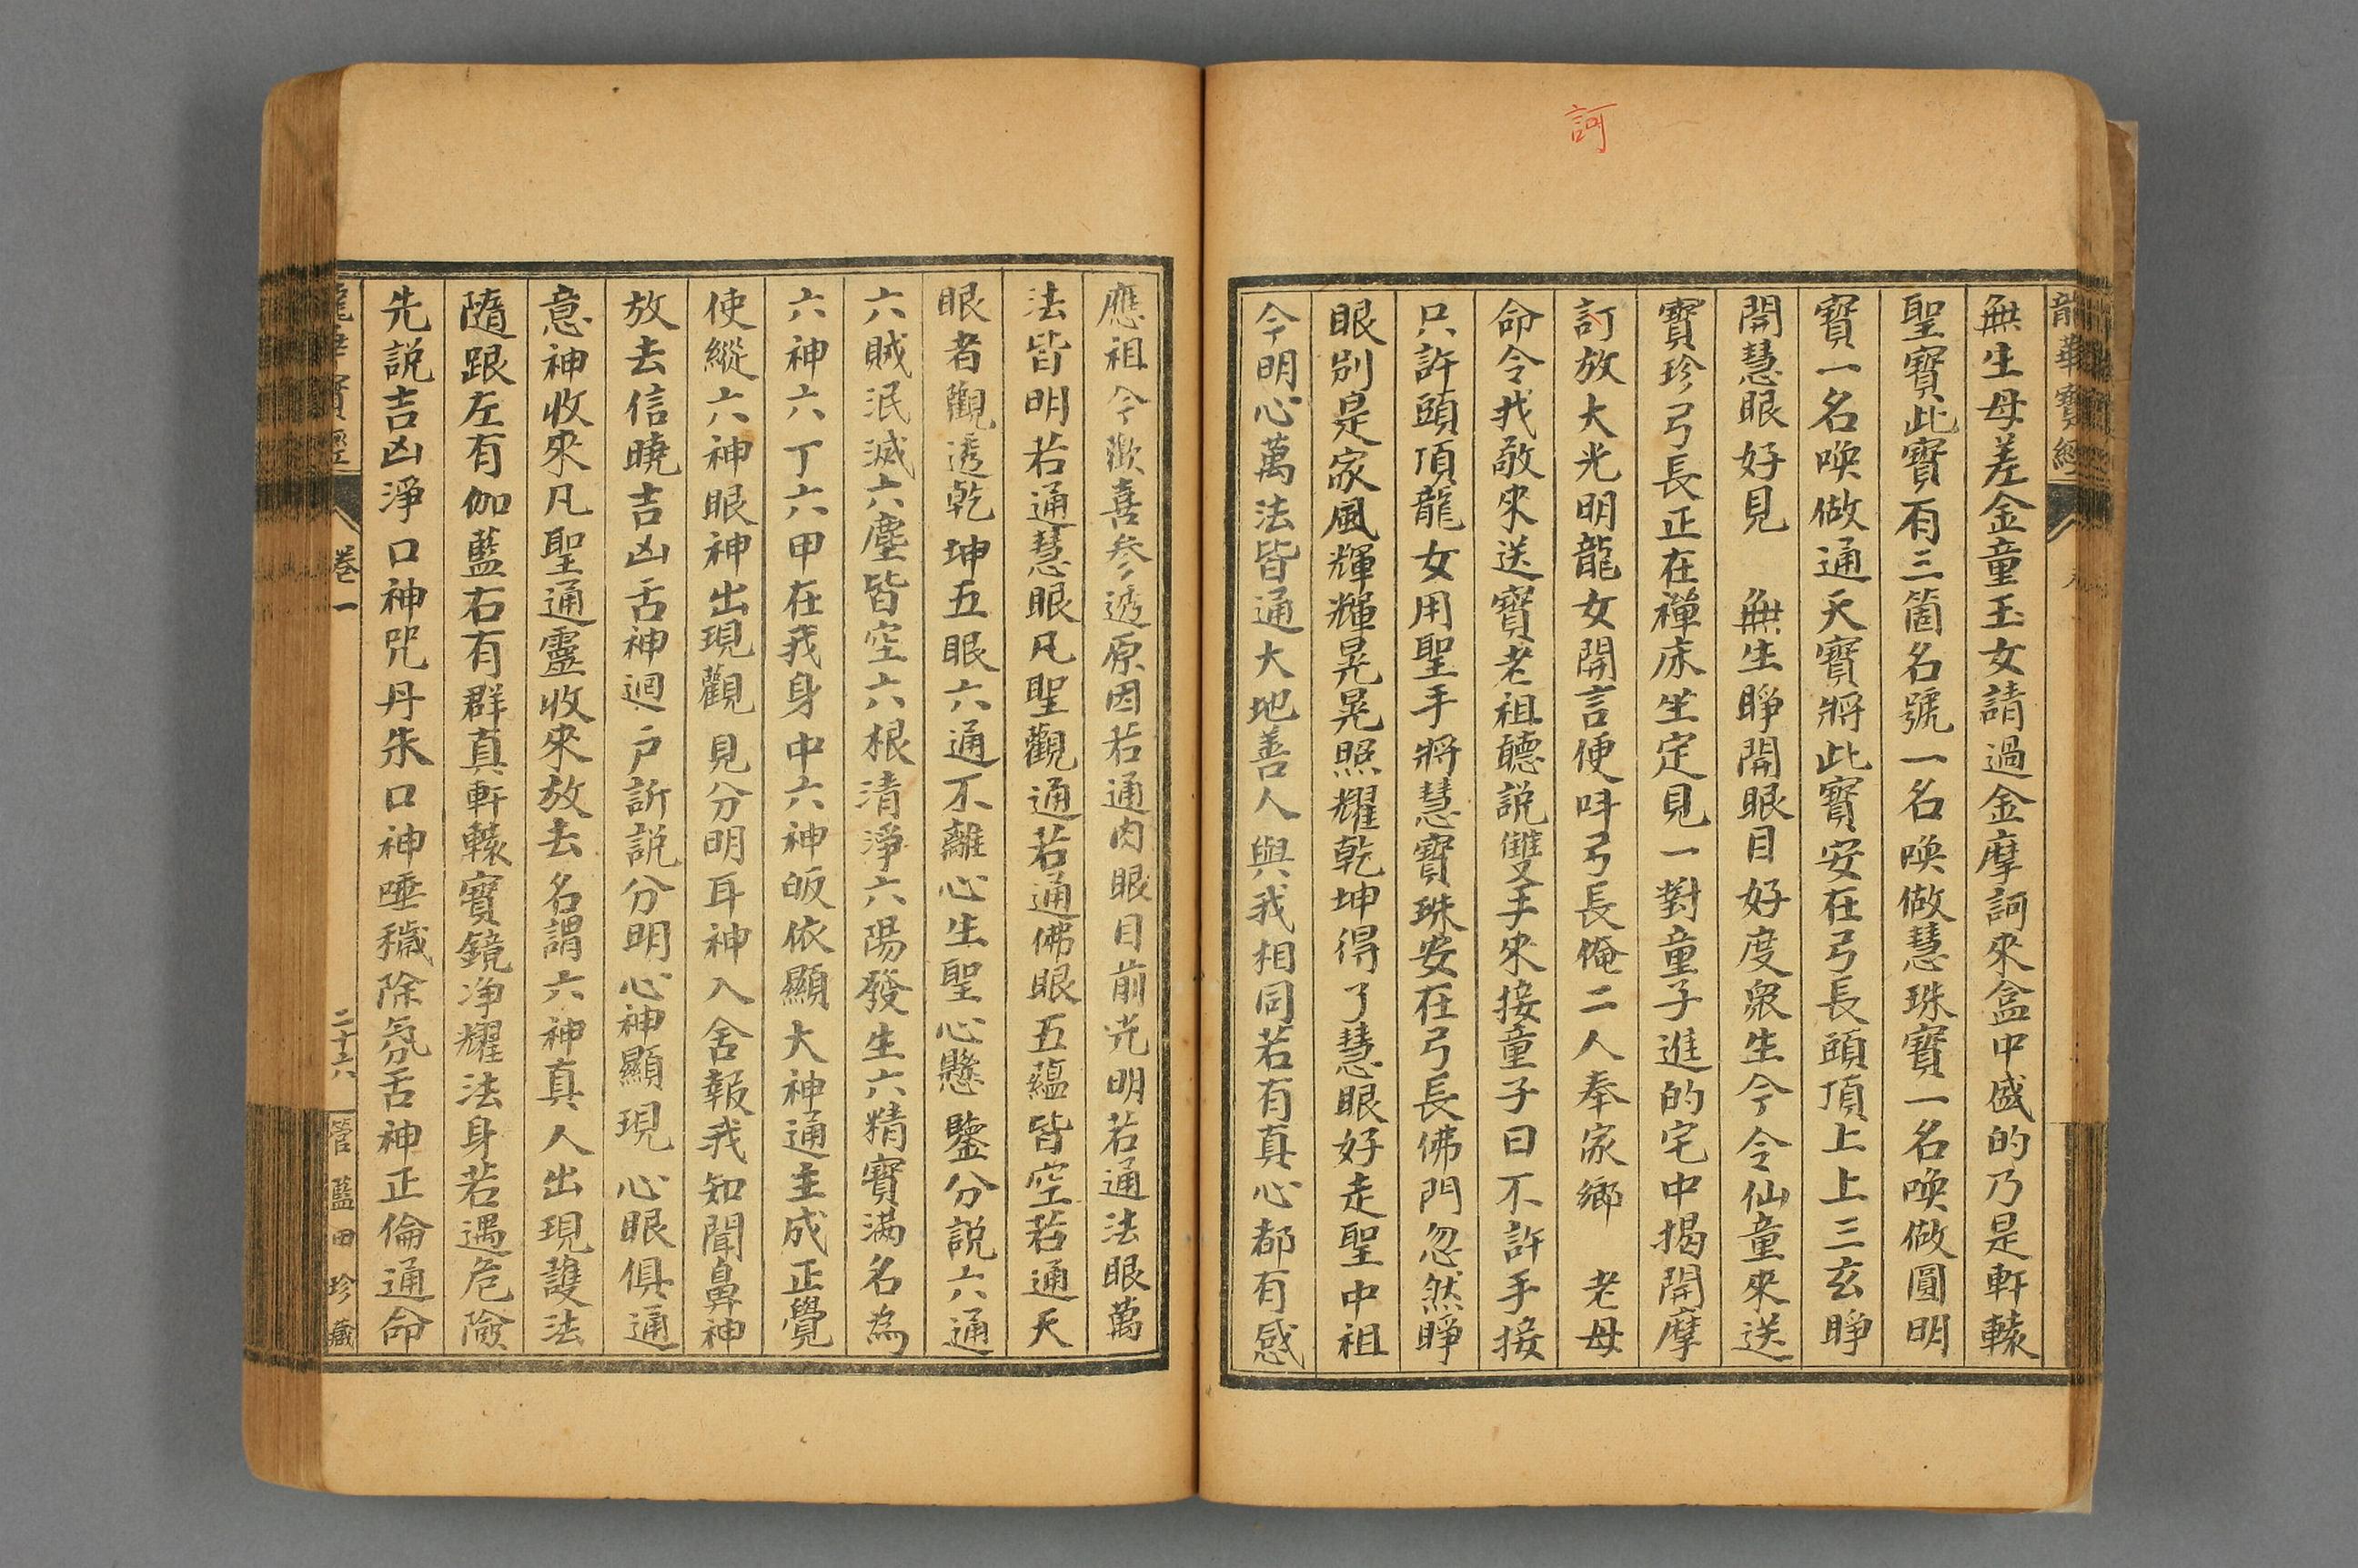 訶
龍華寶經
無生母差金童玉女請過金摩訶來盒中盛的乃是軒轅
聖寶此寶有三箇名號一名喚做慧珠寶一名喚做圓明
寶一名喚做通天寶將此寶安在弓長頭頂上上三玄睜
開慧眼好見 無生睜開眼目好度衆生今令仙童來送
寶珍弓長正在禪床坐定見一對童子進的宅中揭開摩
訂放大光明龍女開言便呌弓長俺二人奉家鄉 老母
命令我敬來送寶老祖聽説雙手來接童子曰不許手接
只許頭頂龍女用聖手將慧寶珠安在弓長佛門忽然睜
眼别是家風輝輝晃晃照耀乾坤得了慧眼好走聖中祖
今明心萬法皆通大地善人與我相同若有真心都有感
應祖今歡喜參透原因若通肉眼目前光明若通法眼萬
法皆明若通慧眼凡聖觀通若通佛眼五蘊皆空若通天
眼者觀透乾坤五眼六通不離心生聖心懸鑒分説六通
六賊泯滅六塵皆空六根清淨六陽發生六精寶满名為
六神六丁六甲在我身中六神皈依顯大神通主成正覺
使縱六神眼神出現觀見分明耳神入舍報我知聞鼻神
放去信曉吉凶舌神迴户訴説分明心神顯現心眼俱通
意神收來凡聖通靈收來放去名謂六神真人出現護法
隨跟左有伽藍右有群真軒轅寶鏡净耀法身若遇危險
先説吉凶淨口神咒丹朱口神唾穢除氛舌神正倫通命
龍華寶經
卷一
二十六
管藍田珍藏